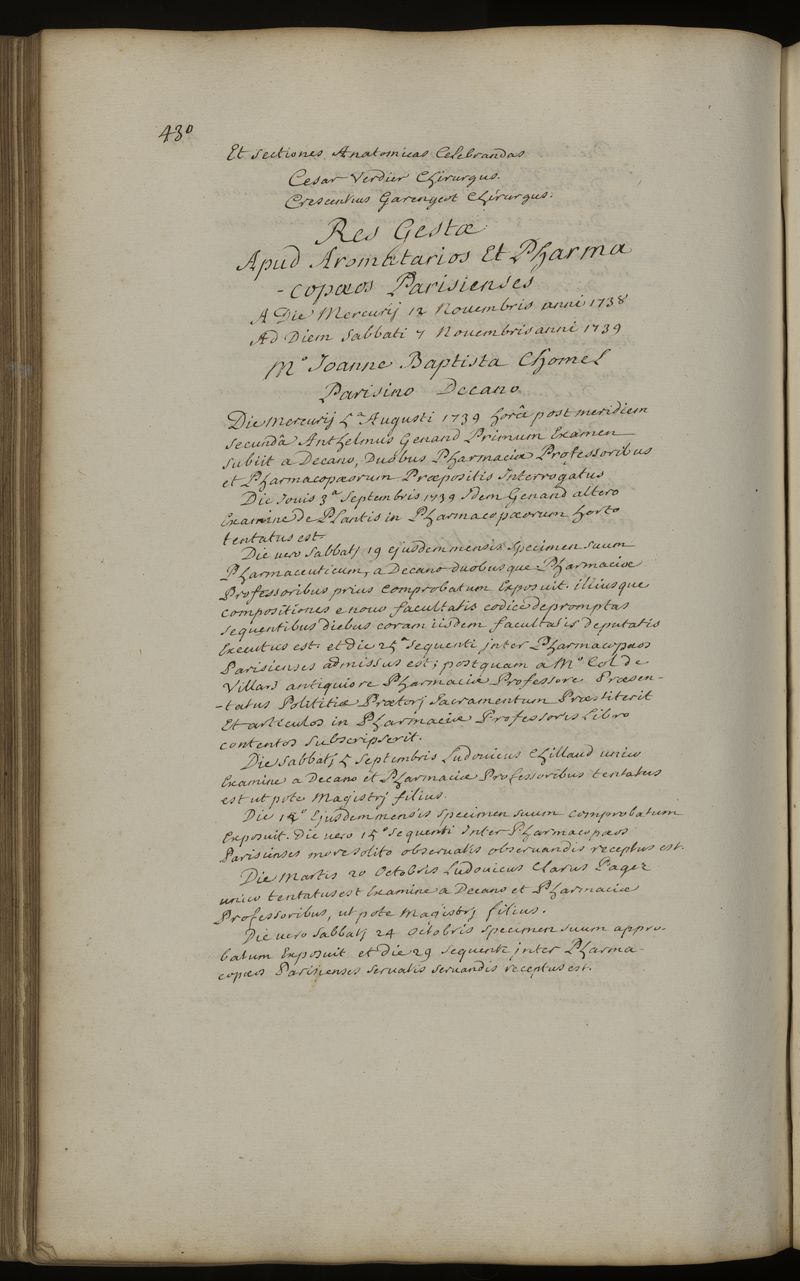 430
Et Sectiones Anatomicas Celebrandas
Cesar Verdier Chirurgus.
Crescentius Garengeot Chirurgus.
Res Gestæ
Apud Aromatarios Et Pharma
-copæos Parisienses
A Die Mercurij 12 Novembris anni 1738
Ad Diem Sabbati 7 Novembris anni 1739
M.º Joanne Baptista Chomel
Parisino Decano
Die Mercurij 5.ª Augusti 1739 horâ post meridiem
Secundâ Anthelmus Genand Primum Examen
Subiit a Decano, Duobus Pharmaciæ Professoribus
et Pharmacopæorum Præpositis Interrogatus
Die Jovis 3.ª Septembris 1739 Idem Genand altero
Examine de Plantis in Pharmacopæorum horto
tentatus est.
Die vero Sabbatj 19 ejusdem mensis Specimen Suum
Pharmaceuticum, a Decano duobusque Pharmaciæ
Professoribus prius Comprobatum Exposuit. illiusque
Compositiones e novo facultatis codice depromptas
Sequentibus diebus coram iisdem facultatis Deputatis
Executus est. et die 25.ª Sequenti inter Pharmacopæos
Parisienses admissus est; postquam a M.º Col de
Villars antiquiore Pharmaciæ Professore Præsen-
-tatus Polititiæ Prætorj Sacramentum Præstiterit
Et articulos in Pharmaciæ Professoris Libro
contentos Subscripserit.
Die Sabbatj 5 Septembris Ludovicus Chillaud unico
Examine a Decano et Pharmaciæ Professoribus tentatus
est ut pote Magistrj filius.
Die 12º Ejusdem mensis Specimen Suum Comprobatum
Exposuit. Die vero 15º Sequenti Inter Pharmacopæos
Parisienses more solito observatis observandis receptus est.
Die Martis 20 Octobris Ludovicus Clarus Pagez
unico tentatus est Examine a Decano et Pharmaciæ
Professoribus, ut pote Magistrj filius.
Die vero Sabbatj 24 Octobris Specimen Suum appro-
batum Exposuit et die 29 Sequenti inter Pharma-
copæos Parisienses Servatis Servandis receptus est.